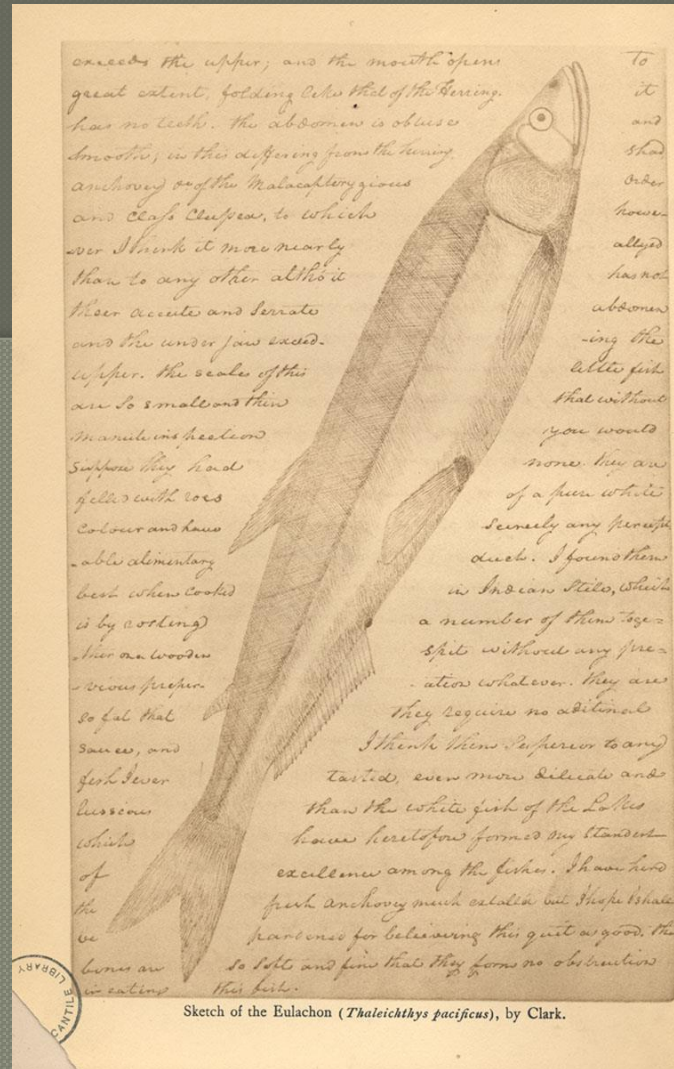 exceeds the upper; and the mouth opens To
great extent, folding like that of the Herring. it
has no teeth. the abdomen is obtuse and
smooth; in this differing from the herring, shad
anchovey &c of the Malacapterygious Order
and Class Clupea, to which howe-
-ver I think it more nearly allyed
than to any other altho' it has not
their accute and serrate abdomen
and the under jaw exceed- -ing the
upper. the scales of this little fish
are so small and thin that without
manute inspection you would
suppose they had none. they are
filled with roes of a pure white
colour and have scercely any percept
-able alimentary duct. I found them
best when cooked in Indian Stile, which
is by rosting a number of them toge=
-ther on a wooden spit without any pre=
-vious preper- -ation whatever. they are
so fat that they require no aditional
sauce, and I think them superior to any
fish I ever tasted, even more delicate and
lusscious than the white fish of the Lakes
which have heretofore formed my standart
of excellence among the fishes. I have herd
the fresh anchovey much extolled but I hope I shall
be pardoned for believing this quit as good. the
bones are so soft and fine that they form no obstruction
in eating this fish.
CANTILE LIBRARY
Sketch of the Eulachon (Thaleichthys pacificus), by Clark.